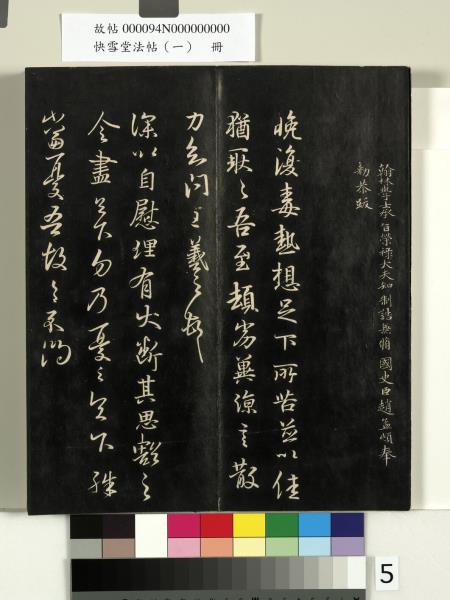 故帖 000094N000000000
快雪堂法帖（一） 冊
翰林學士承旨榮祿大夫知制誥兼脩國史臣趙孟頫奉
勅恭跋
晚復毒熱想足下所苦並以佳
猶耿耿吾至頓劣冀涼言散
力知問王羲之頓
深以自慰理有大斷其思豁之
令盡足下勿乃憂之足下殊
當憂吾故之不問
5